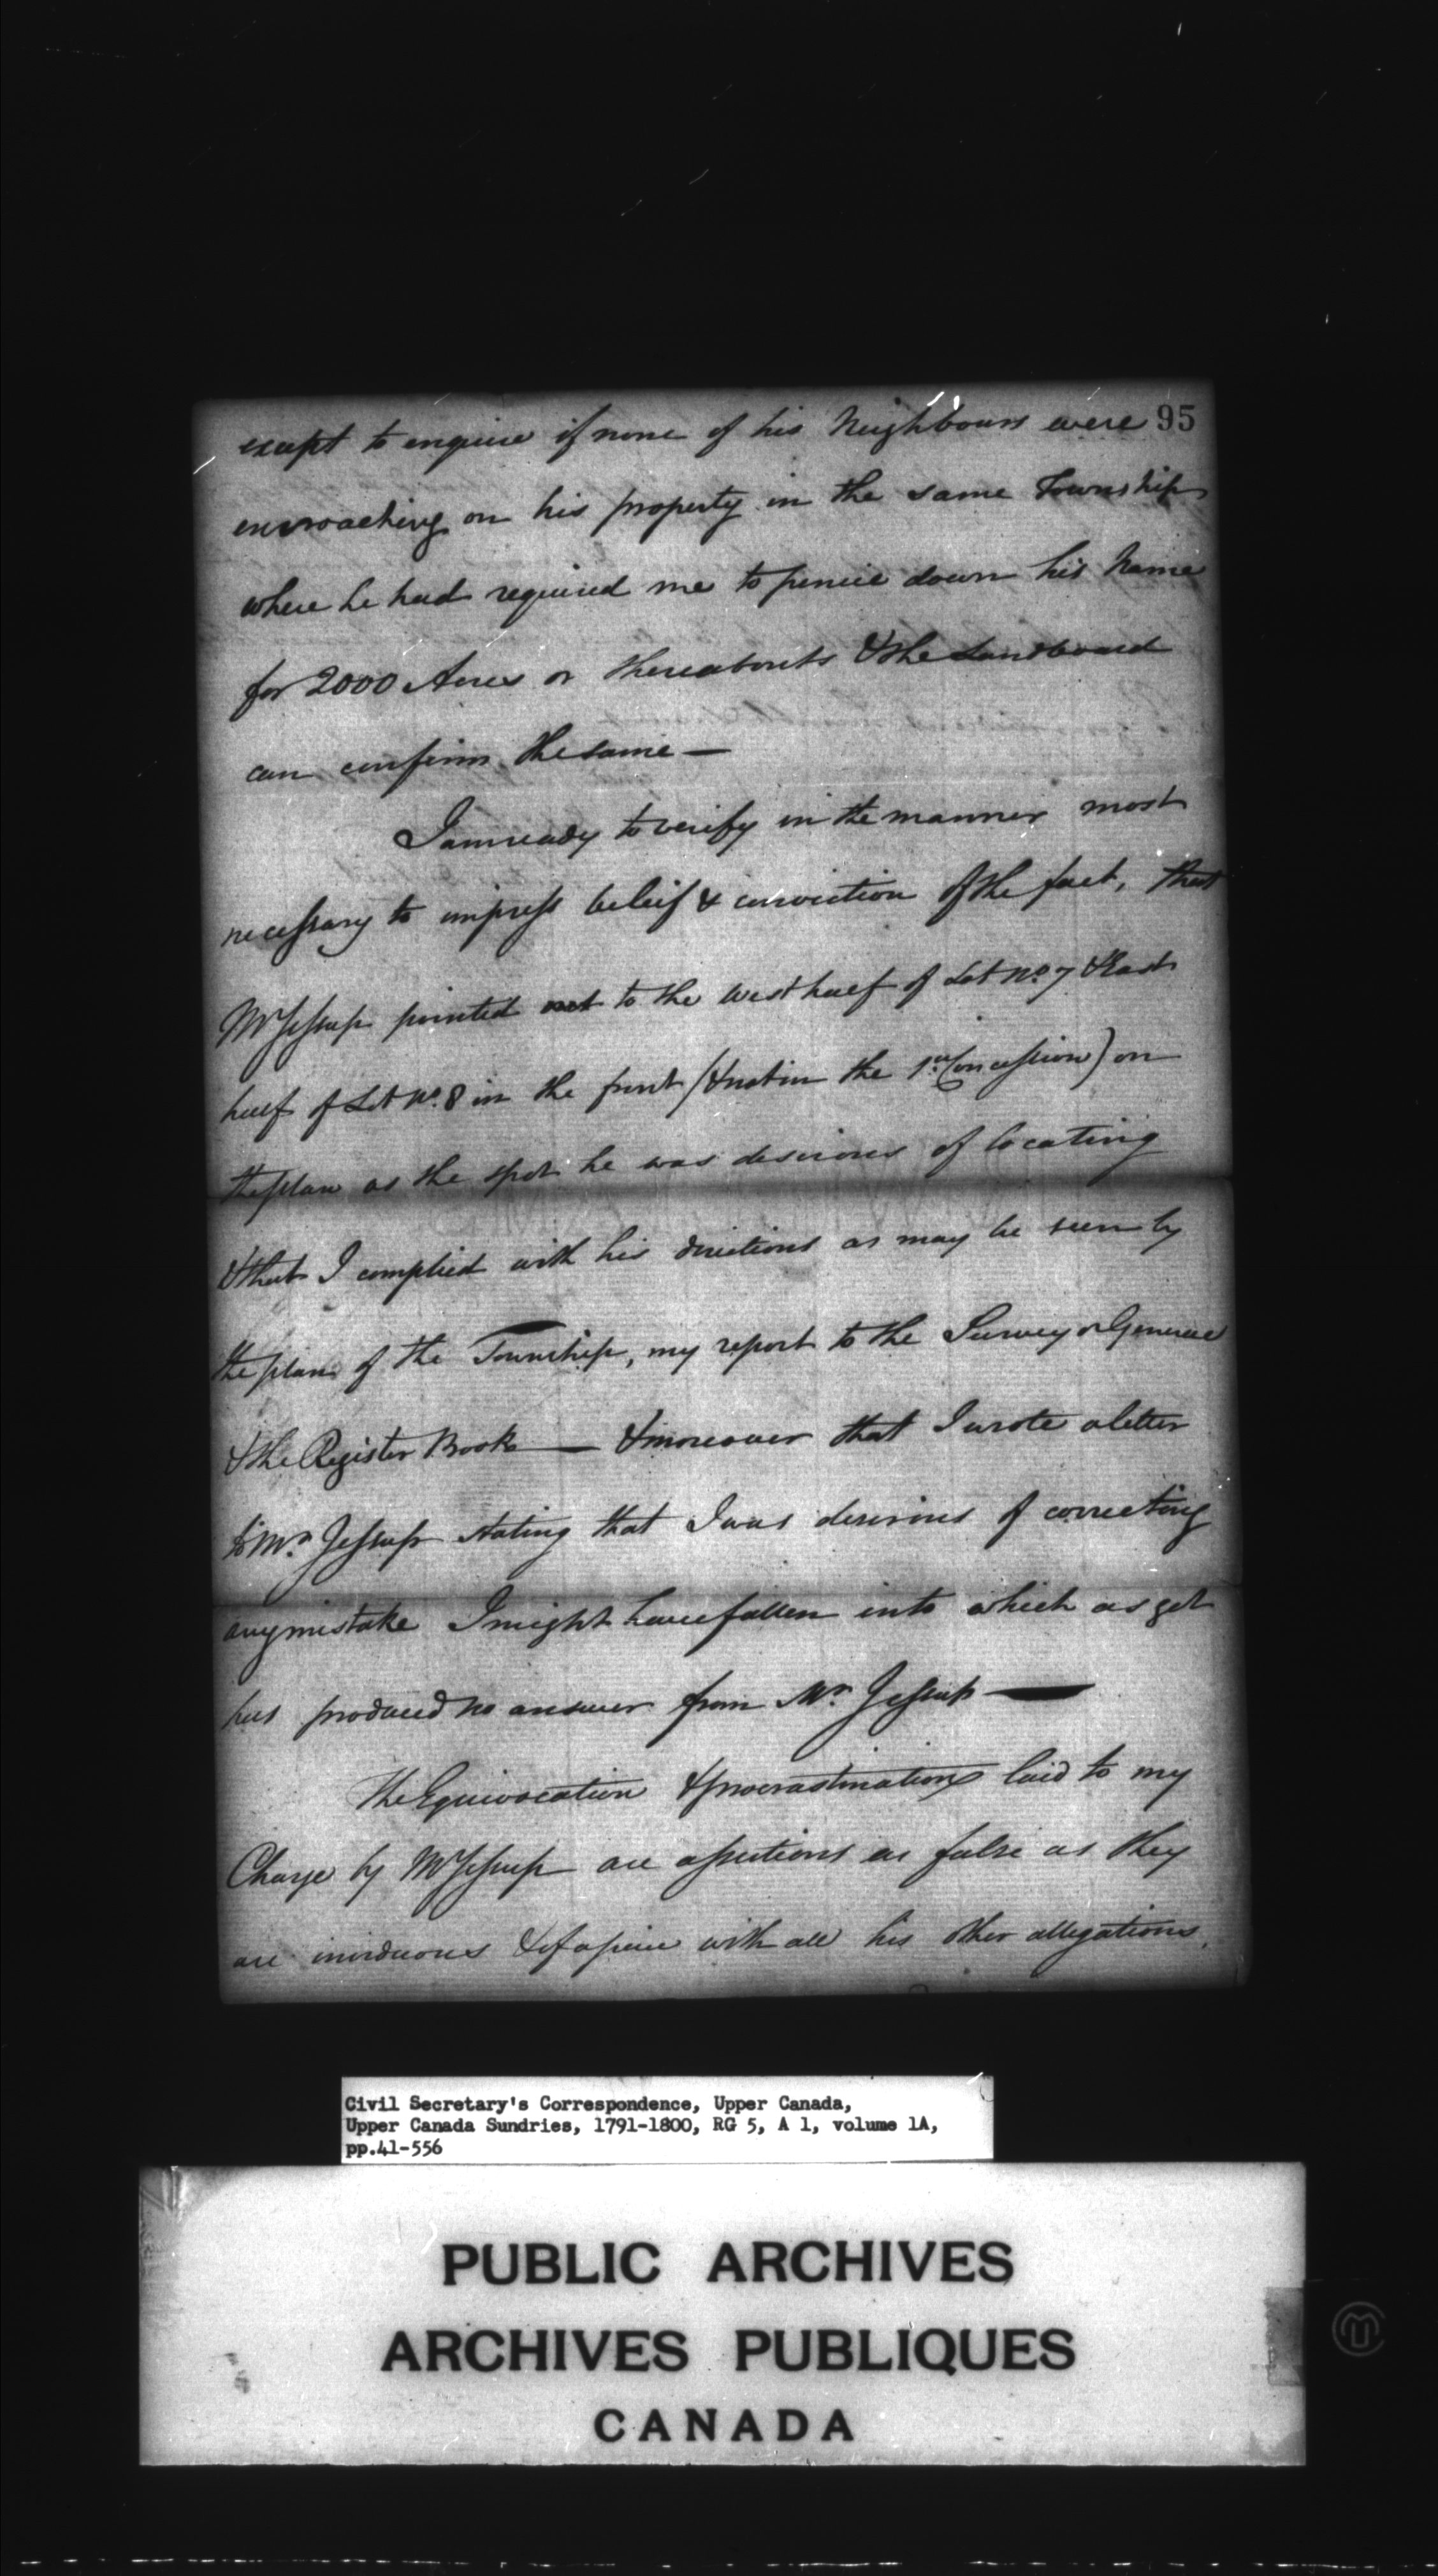 except to enquire if none of his Neighbours were 95
encroaching on his property in the same Township
where he had required me to pencil down his Name
for 2000 Acres or thereabouts & the Landboard
can confirm the same —
I am ready to verify in the manner most
necessary to impress beleif & conviction of the fact, that
Mr Jessup pointed out to the West half of Lot No. 7 & East
half of Lot No. 8 in the front (& not in the 1st Concession) on
the plan as the spot he was desirous of locating
& that I complied with his directions as may be seen by
the plan of the Township, my report to the Surveyor General
& the Register Book — & moreover that I wrote a letter
to Mr. Jessup stating that I was desirous of correcting
any mistake I might have fallen into which as yet
has produced no answer from Mr. Jessup —
The Equivocation & procrastination laid to my
Charge by Mr Jessup are assertions as false as they
are & of a piece with all his other allegations,
Civil Secretary's Correspondence, Upper Canada,
Upper Canada Sundries, 1791-1800, RG 5, A 1, volume 1A,
pp.41-556
PUBLIC ARCHIVES
ARCHIVES PUBLIQUES
CANADA